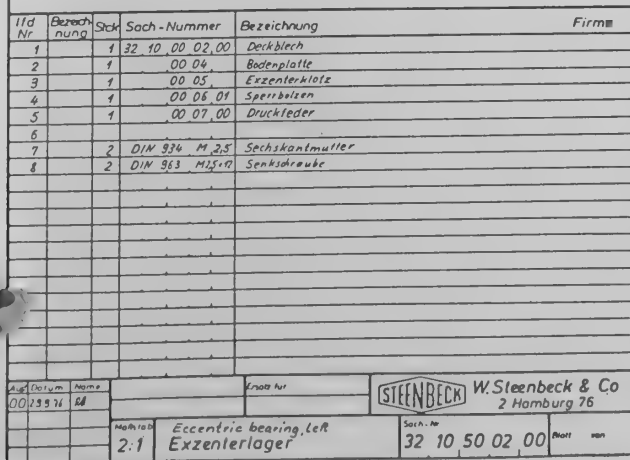 lfd Nr Bezeichnung Stck Sach-Nummer Bezeichnung Firma
1 1 32 10 00 02,00 Deckblech
2 1 00 04 Bodenplatte
3 1 00 05 Exzenterklotz
4 1 00 06 01 Sperrbolzen
5 1 00 07,00 Druckfeder
6
7 2 DIN 934 M 2,5 Sechskantmutter
8 2 DIN 963 Senkschraube
Datum Name Ersatz für
00
STEENBECK W. Steenbeck & Co
2 Hamburg 76
Maßstab Eccentric bearing, left Sach.-Nr Blatt von
2:1 Exzenterlager 32 10 50 02 00